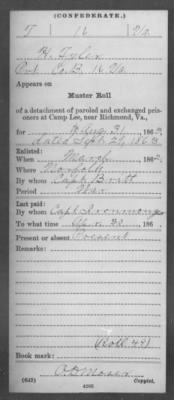 (CONFEDERATE.)
T 16 Va.
H. Tyler
Pvt. Co. B. 16 Va.
Appears on
Muster Roll
of a detachment of paroled and exchanged prisoners at Camp Lee, near Richmond, Va.,
for Aug. 31, 186
dated Sept. 26, 1863
Enlisted:
When March, 186
Where Norfolk
By whom Capt. Britt
Period War
Last paid:
By whom Capt.
To what time 186
Present or absent Present
Remarks:
(Roll 49)
Book mark:
(642)
Copyist.